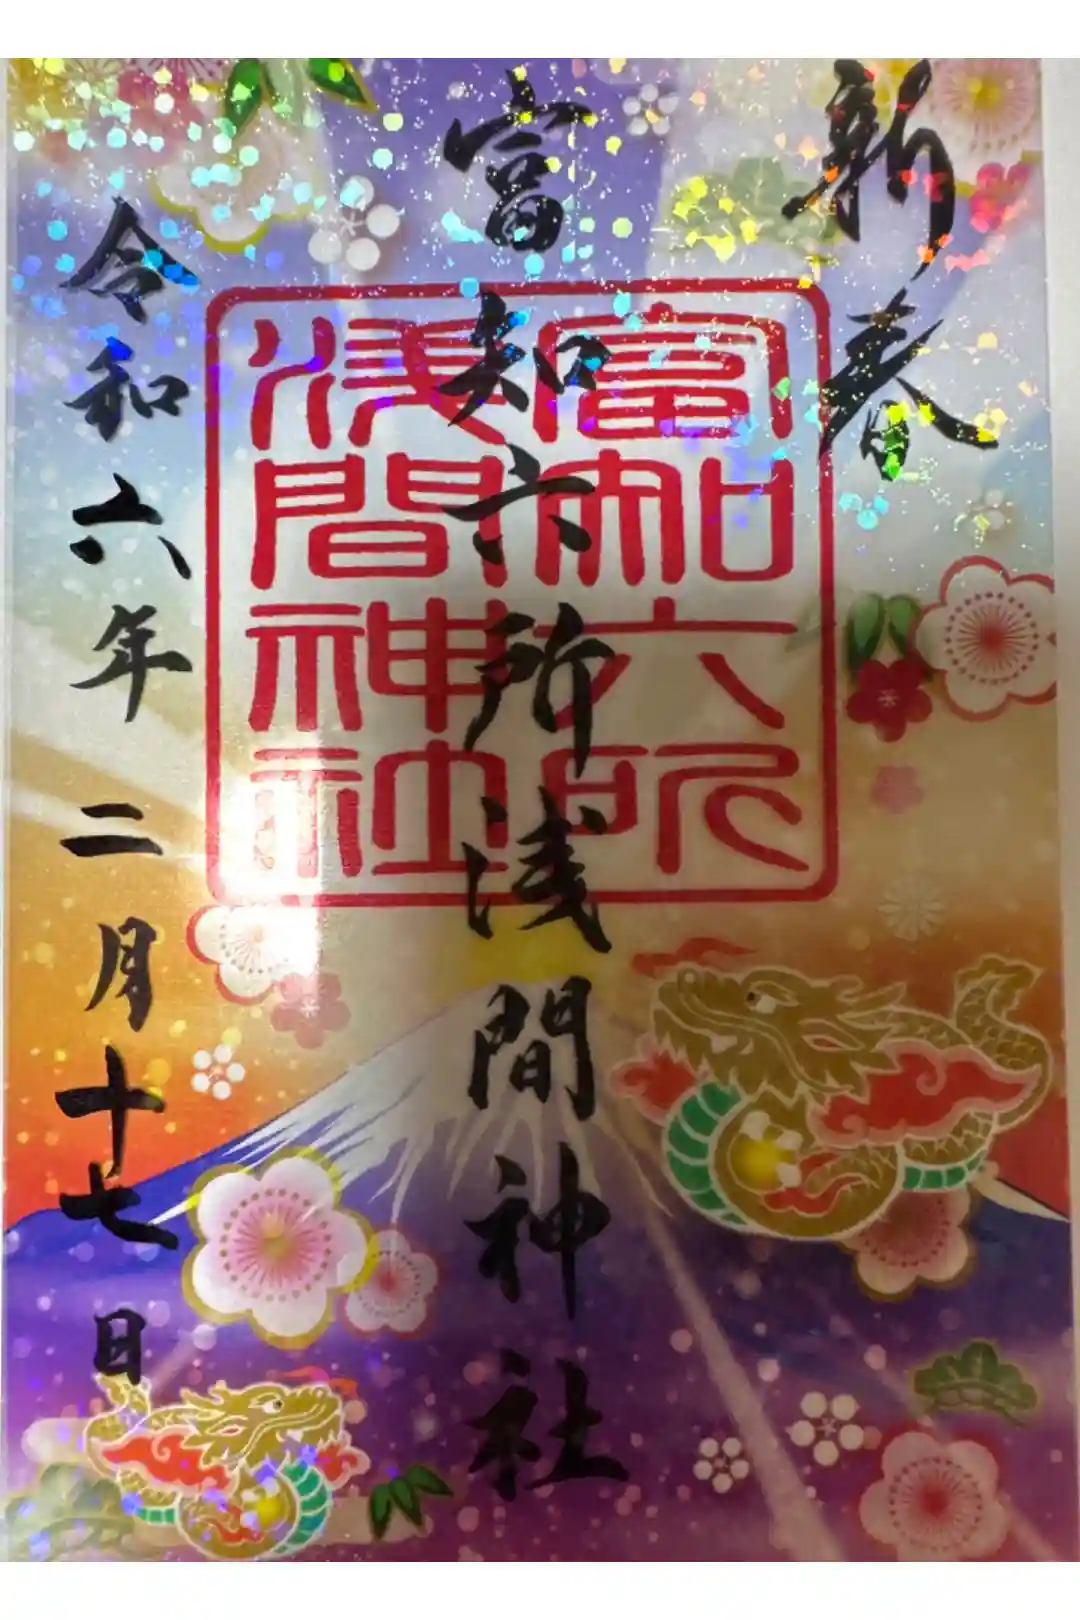 新春
富知六所浅間神社
富知六所
浅間神社
令和六年二月十七日